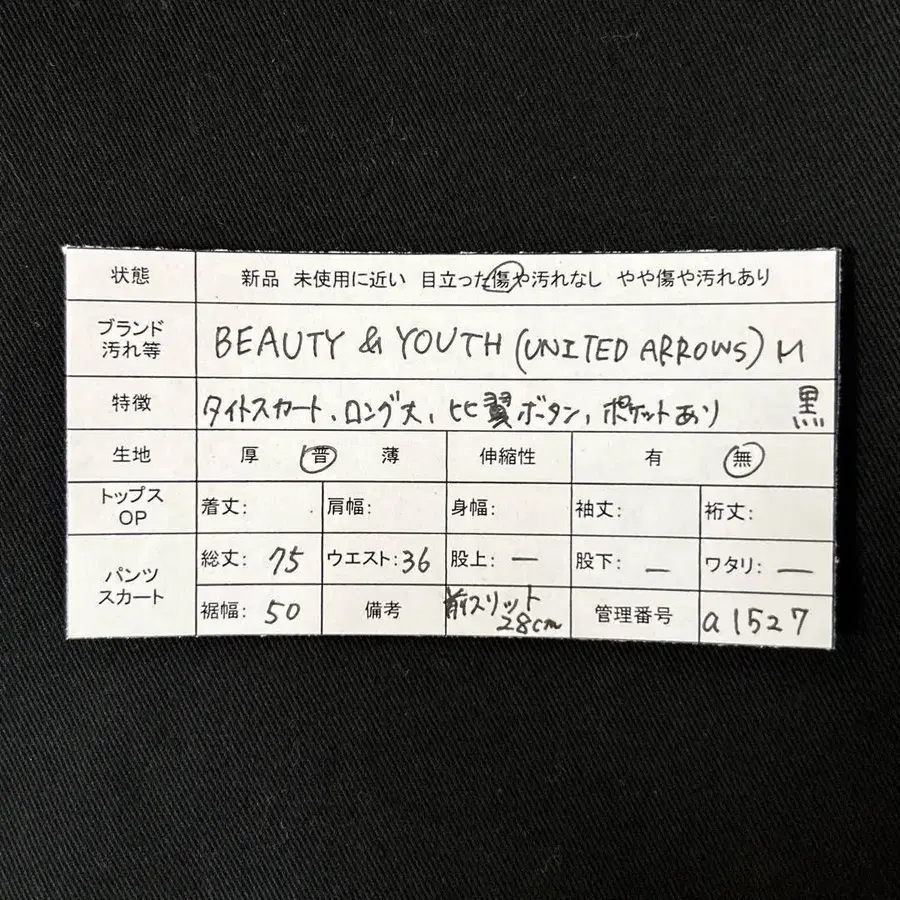 状態 新品 未使用に近い 目立った傷や汚れなし やや傷や汚れあり
ブランド
汚れ等
BEAUTY & YOUTH (UNITED ARROWS) M
特徴 タイトスカート、ロング丈、比翼ボタン、ポケットあり 黒
生地 厚 普 薄 伸縮性 有 無
トップス
OP
着丈: 肩幅: 身幅: 袖丈: 裄丈:
パンツ
スカート
総丈: 75 ウエスト: 36 股上: — 股下: — ワタリ: —
裾幅: 50 備考 前スリット
28cm
管理番号 a1527